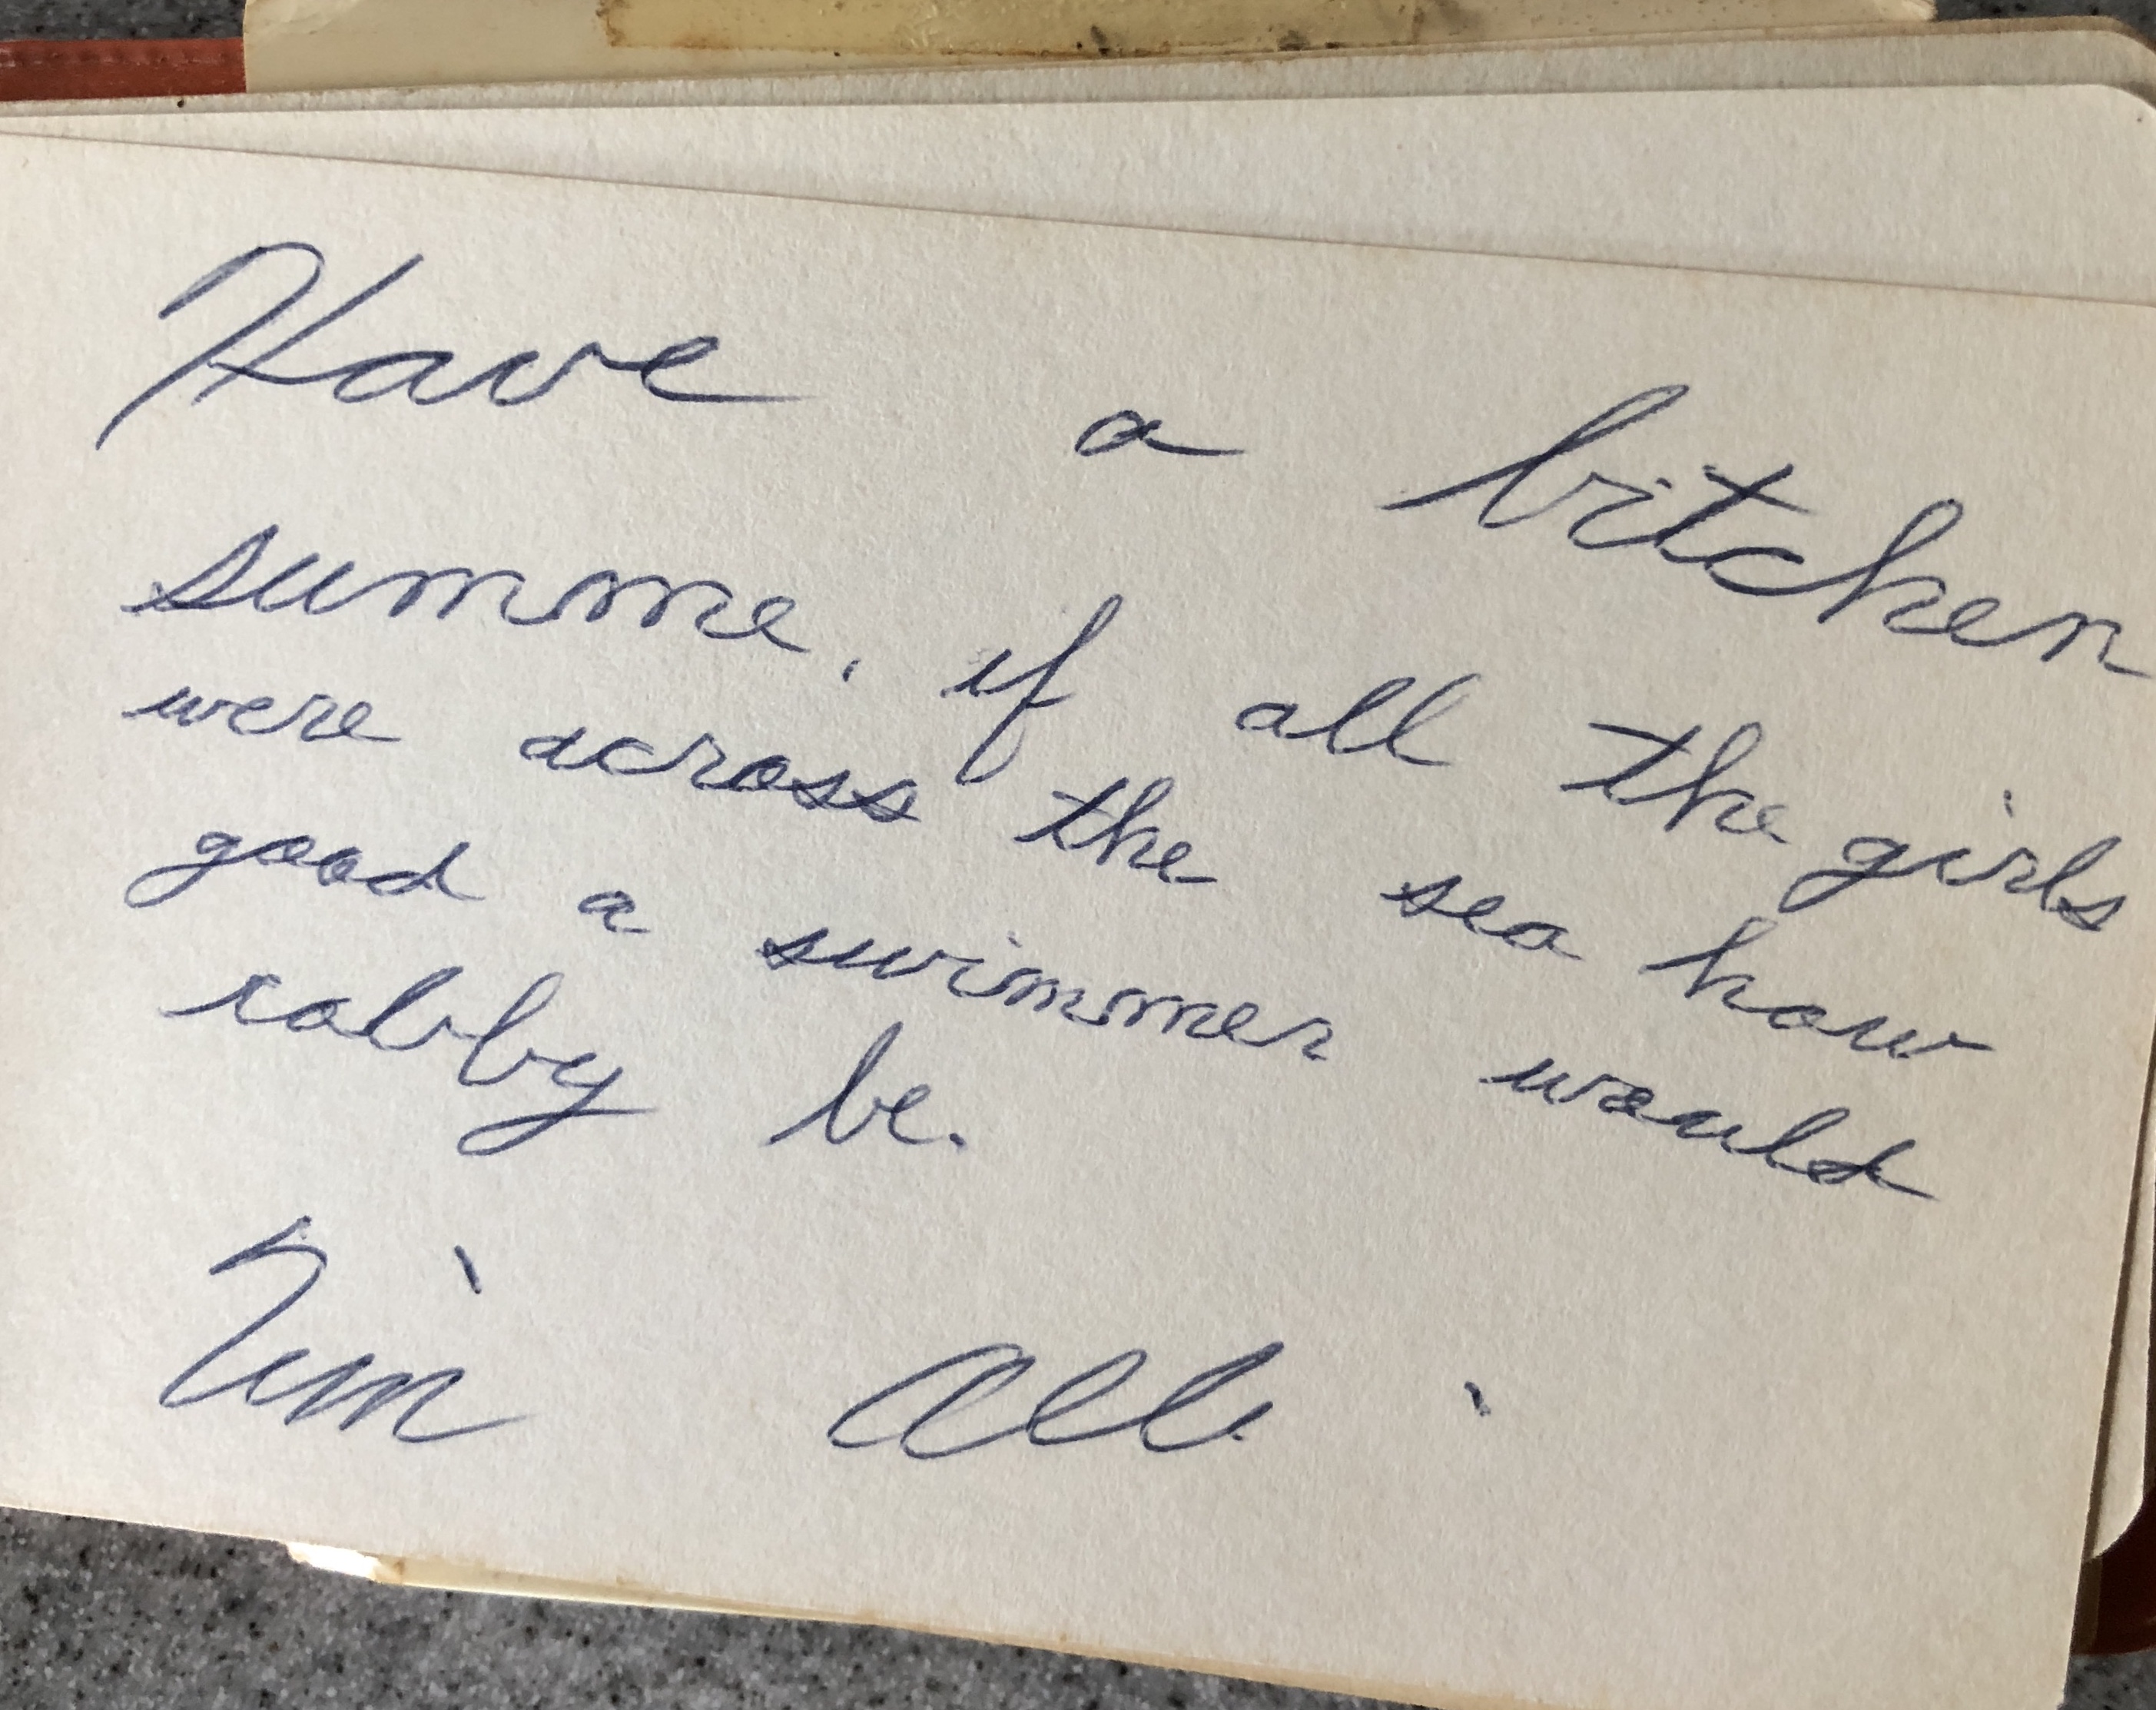 Have a bitchen
summe, if all the girls
were across the sea how
good a swimmer would
robby be.
Tim